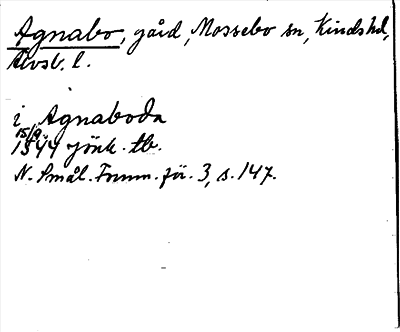 Agnabo, gård, Mossebo sn, Kinds hd,
Älvsb. l.
i Agnaboda
15/9
1544 Jönk. tb.
N. Smål. Fornm. för. 3, s. 147.